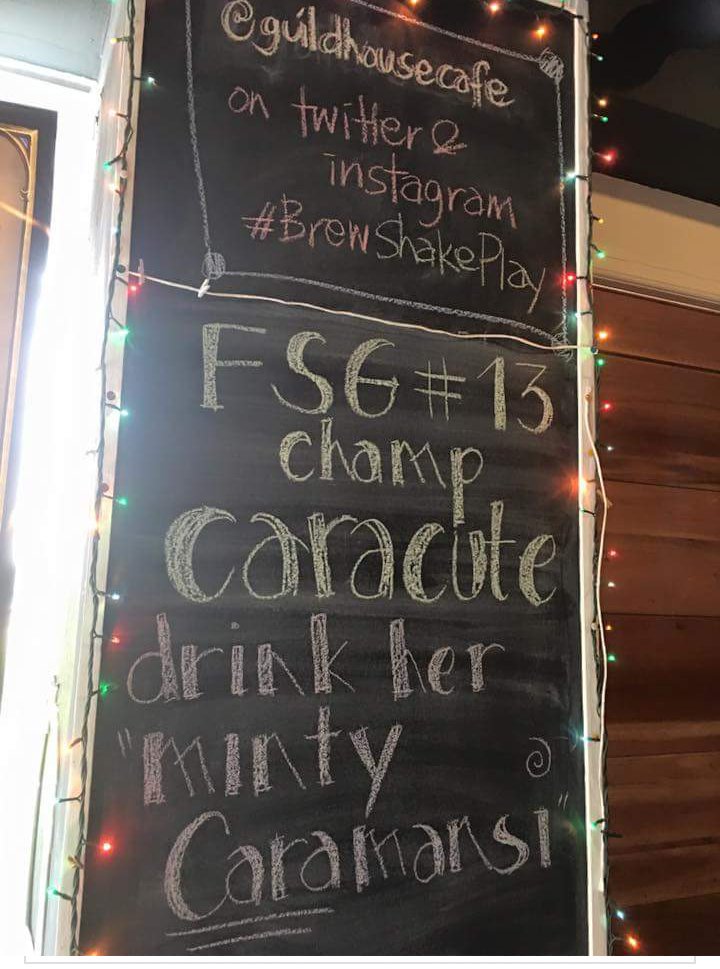 @guildhousecafe
on twitter &
instagram
#BrewShakePlay
FSG #13
champ
caracute
drink her
"minty
Caramansi"